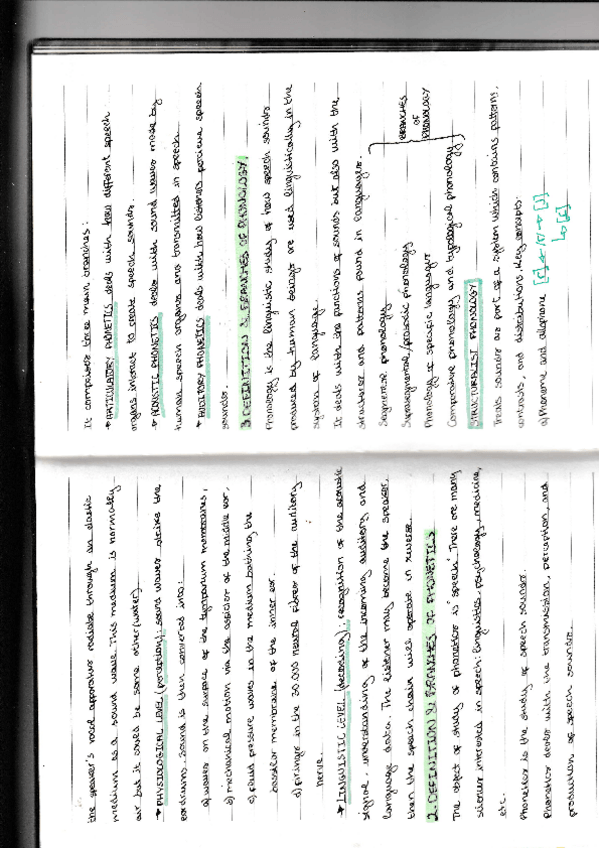 the speaker's vocal apparatus radiate through an elastic
medium as a sound wave. This medium is normally
air but it could be some other (water).
→ PHYSIOLOGICAL LEVEL (reception): sound waves strike the
eardrum. Sound is then converted into:
a) waves on the surface of the tympanum membranes,
b) mechanical motion via the ossicles of the middle ear,
c) fluid pressure waves in the medium bathing the
basilar membrane of the inner ear.
d) firings in the 30.000 neural fibres of the auditory
nerve.
→ LINGUISTIC LEVEL (decoding): recognition of the acoustic
signal, understanding of the incoming auditory, and
language data. The listener may become the speaker,
then the speech chain will operate in reverse.
2. DEFINITION & BRANCHES OF PHONETICS
The object of study of phonetics is "speech". There are many
sciences interested in speech: linguistics, psychology, medicine,
etc.
Phonetics is the study of speech sounds.
Phonetics deals with the transmission, perception, and
production of speech sounds.
It comprises three main branches:
→ ARTICULATORY PHONETICS deals with how different speech
organs interact to create speech sounds.
→ ACOUSTIC PHONETICS deals with sound waves made by
human speech organs and transmitted in speech.
→ AUDITORY PHONETICS deals with how listeners perceive speech
sounds.
3. DEFINITION & BRANCHES OF PHONOLOGY
Phonology is the linguistic study of how speech sounds
produced by human beings are used linguistically in the
system of language.
It deals with the functions of sounds but also with the
structures and patterns found in languages.
Segmental phonology
Suprasegmental/prosodic phonology
Phonology of specific languages
Comparative phonology and typological phonology
BRANCHES
OF
PHONOLOGY
STRUCTURALIST PHONOLOGY
Treats sounds as part of a system which contains patterns,
contrasts, and distributions. Key concepts:
a) Phoneme and allophone